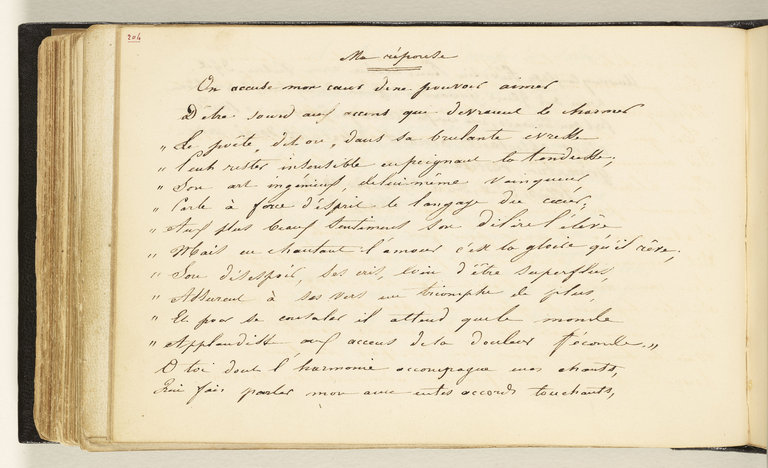 204
Ma réponse
On accuse mon cœur de ne pouvoir aimer
D'être sourd aux accens que devraient le charmer
„ Le poëte, dit on, dans sa brulante ivresse
„ Peut rester insensible en peignant la tendresse;
„ Son art ingénieux, de lui même vainqueur
„ Parle à force d'esprit le langage du cœur;
„ Aux plus beaux sentiments son délire l'élève
„ Mais en chantant l'amour c'est la gloire qu'il rêve;
„ Son désespoir, ses cris, loin d'être superflus,
„ Assurent à ses vers un triomphe de plus,
„ Et pour se consoler il attend que le monde
„ Applaudisse aux accens de sa douleur féconde. „
O toi dont l'harmonie accompagne mes chants,
Qui fais parler mon âme en tes accords touchants,